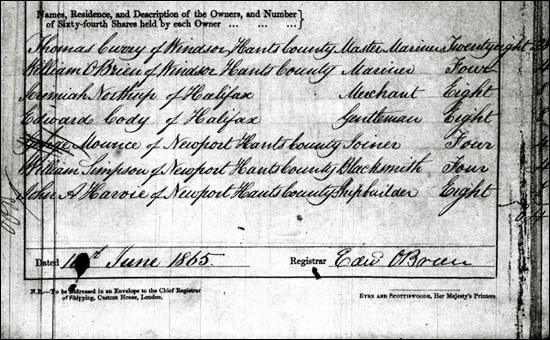 Names, Residence, and Description of the Owners, and Number
of Sixty-fourth Shares held by each Owner ... ... ...
Thomas Curry of Windsor Hants County Master Mariner Twenty eight 28
William O'Brien of Windsor Hants County Mariner Four 4
Jeremiah Northup of Halifax Merchant Eight 8
Edward Cody of Halifax Gentleman Eight 8
George Mounce of Newport Hants County Joiner Four 4
William Simpson of Newport Hants County Blacksmith Four 4
John A Harvie of Newport Hants County Shipbuilder Eight 8
64
Dated June 1865. Registrar Edw O'Brien
N.B.—To be addressed in an Envelope to the Chief Registrar
of Shipping, Custom House, London.
Eyre and Spottiswoode, Her Majesty's Printers